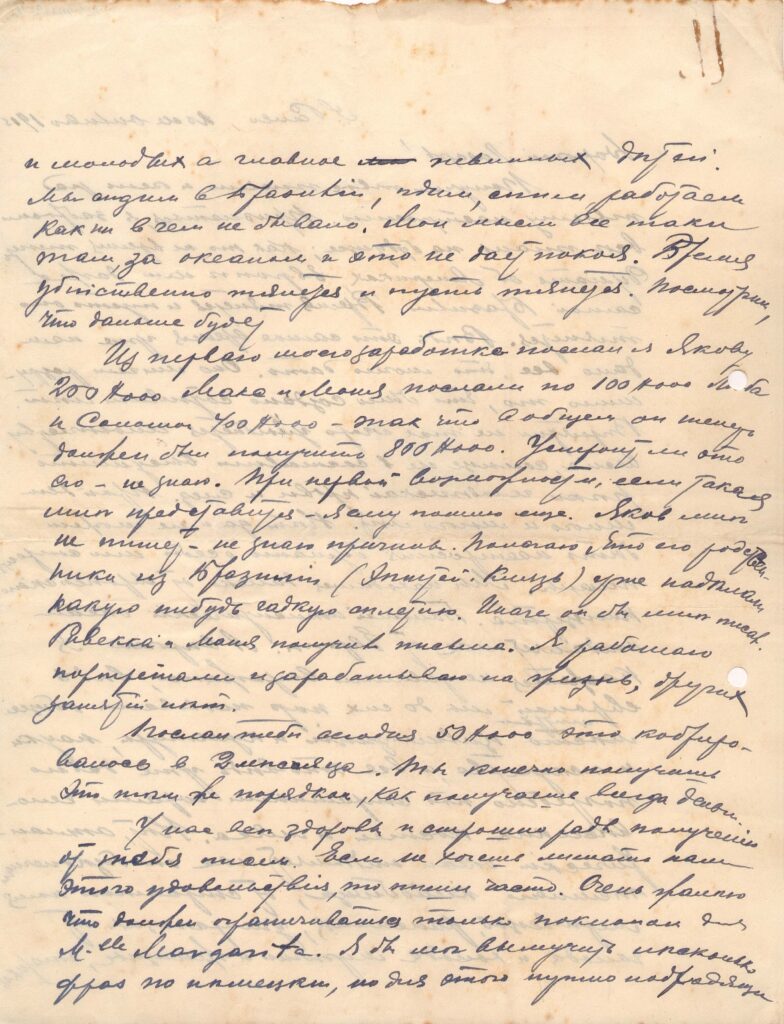 и молодых а главное невинных детей.
Мы сидим в Бразилии, едим, спим работаем
как ни в чем не бывало. Мои мысли все таки
там за океаном и это не дает покоя. Время
убийственно тянется и пусть тянется. Посмотрим,
что дальше будет
Из первого моего заработка послал я Якову
200 $000 Макс и Моня послали по 100 $000 Люба
и Соломон 400 $000 – так что в общем он теперь
должен был получить 800 $000. Устроит ли это
его – не знаю. При первой возможности, если такая
мне представится – я ему пошлю еще. Яков мне
не пишет – не знаю причины. Полагаю, что его родствен-
ники из Бразилии уже наделали
какую нибудь гадкую сплетню. Иначе он бы мне писал.
Ривекка и Моня получив письма. Я работаю
портретами и зарабатываю на жизнь, других
занятий нет.
Послал тебе сегодня 50 $000 это
в 2 месяца. Ты конечно получишь
это тем же порядком, как получаешь всегда деньги.
У нас все здоровы и страшно рады получению
от тебя писем. Если не хочешь лишать нам
этого удовольствия, то пиши часто. Очень жалею
что должен ограничиваться только поклоном для
M-lle Margarita. Я бы мог вымучить несколько
фраз по немецки, но для этого нужно